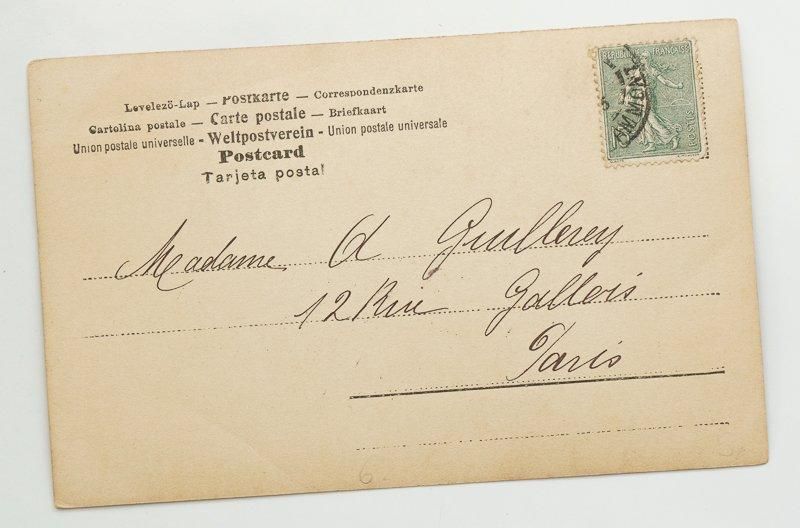 Levelező-Lap — Postkarte — Correspondenzkarte
Cartolina postale — Carte postale — Briefkaart
Union postale universelle - Weltpostverein - Union postale universale
Postcard
Tarjeta postal
REPUBLIQUE FRANÇAISE
POSTES
Madame A Guillerey
12 Rue Gallois
Paris
6